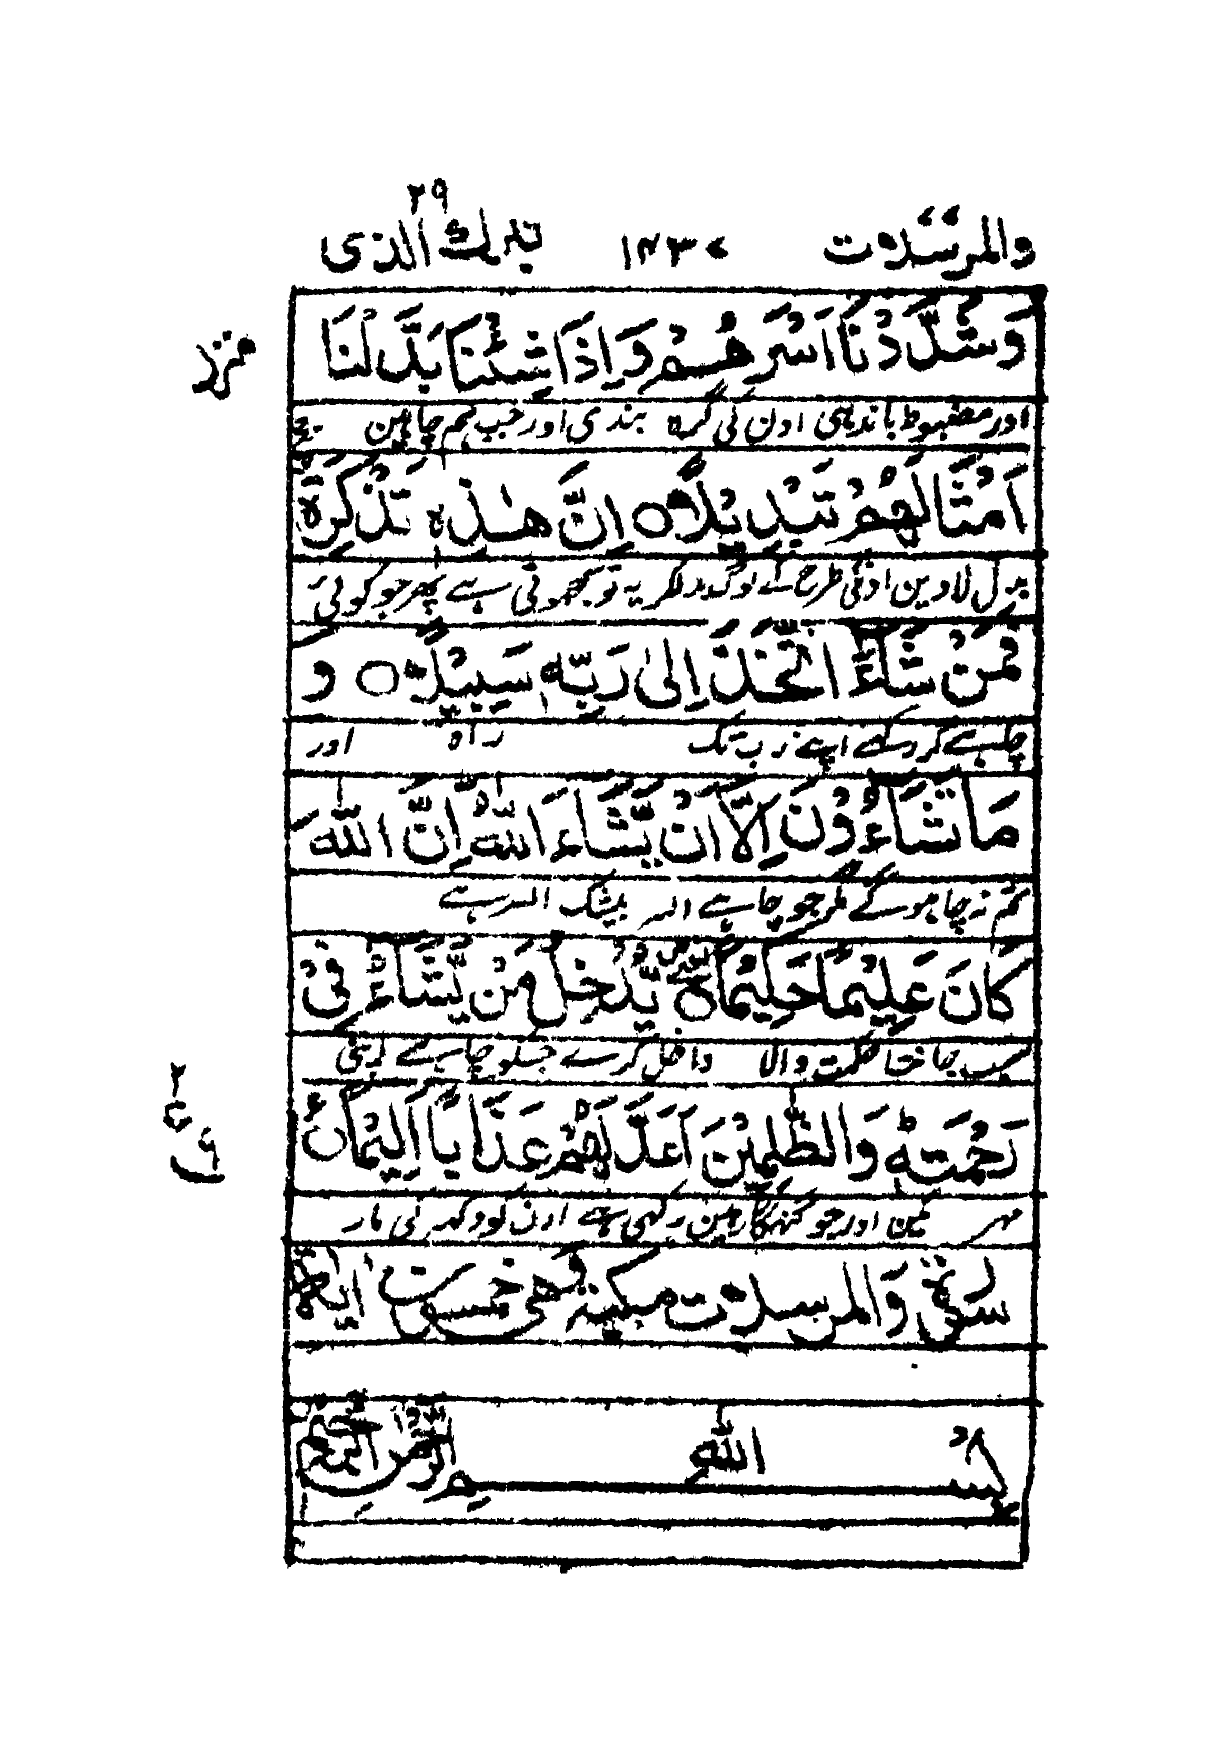 ٢٩
والمرسلات ١٤٣٠ تبرك الذى
وَشَدَدْنَا اَسْرَهُمْ وَاِذَا شِئْنَا بَدَّلْنَا
منزل
اور مضبوط باندہی اون کی گرہ بندی اور جب ہم چاہین
اَمْثَالَهُمْ تَبْدِيْلًا ○ اِنَّ هٰذِهٖ تَذْكِرَةٌ
بدل لاوین اونکی طرح کے لوگ بدلکر یہ تو سمجھوتی ہے پھر جو کوئی
فَمَنْ شَآءَ اتَّخَذَ اِلٰى رَبِّهٖ سَبِيْلًا ○ وَ
چاہے کر رکھے اپنے رب تک راہ اور
مَا تَشَآءُوْنَ اِلَّآ اَنْ يَّشَآءَ اللّٰهُ اِنَّ اللّٰهَ
تم نہ چاہوگے مگر جو چاہے اللہ بیشک اللہ ہے
كَانَ عَلِيْمًا حَكِيْمًا ○ يُّدْخِلُ مَنْ يَّشَآءُ فِيْ
سب جانتا حکمت والا داخل کرے جسکو چاہے اپنی
رَحْمَتِهٖ وَالظّٰلِمِيْنَ اَعَدَّ لَهُمْ عَذَابًا اَلِيْمًا
٢
ع
مہر مین اور جو گنہگار ہین رکھی ہے اون کو دکھہ کی مار
سورة والمرسلات مكية وهى خمسون اية
بِسْمِ اللّٰهِ الرَّحْمٰنِ الرَّحِيْمِ